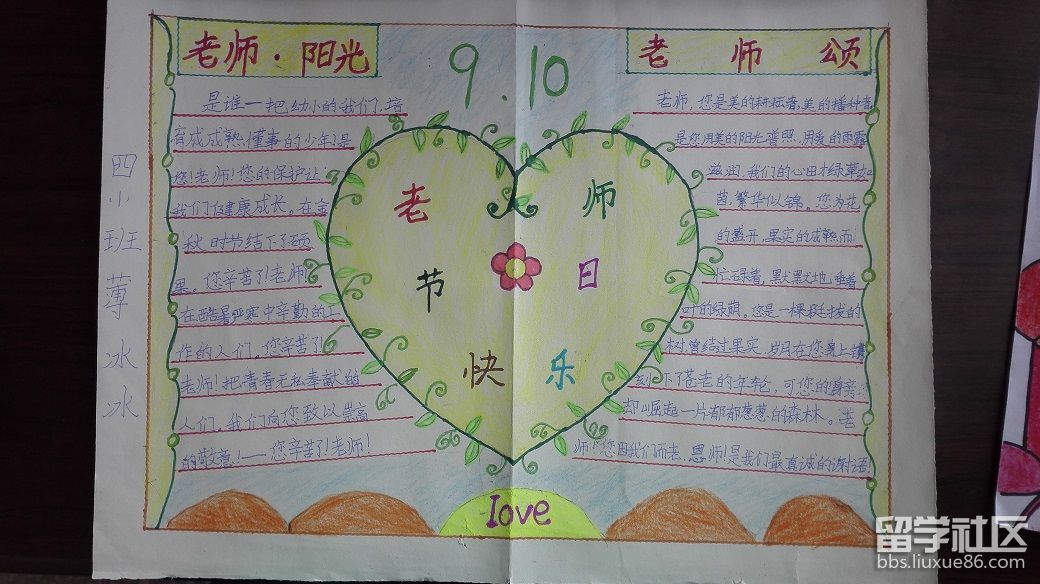 四小班薄冰冰
老师·阳光
是谁一把幼小的我们，培
育成成熟懂事的少年！是
您！老师！您的保护让
我们健康成长。在金
秋时节结下了硕
果。您辛苦了！老师！
在酷暑严寒中辛勤的工
作的人们。您辛苦了！
老师！把青春无私奉献给
人们。我们向您致以崇高
的敬意！——您辛苦了！老师！
9.10
老师
节日
快乐
love
老师颂
老师，您是美的耕耘者，美的播种者
是您用美的阳光普照，用爱的雨露
滋润，我们的心田才绿草如
茵，繁华似锦。您为花
的盛开，果实的成熟而
忙碌着，默默默地垂着
叶的绿荫。您是一棵挺拔的
树曾结过果实，岁月在您身上镌
刻下了苍老的年轮，可您的身旁
却崛起一片郁郁葱葱的森林。老
师！您因我们而老，恩师！是我们最真诚的谢语！
留学社区
bbs.liuxue86.com